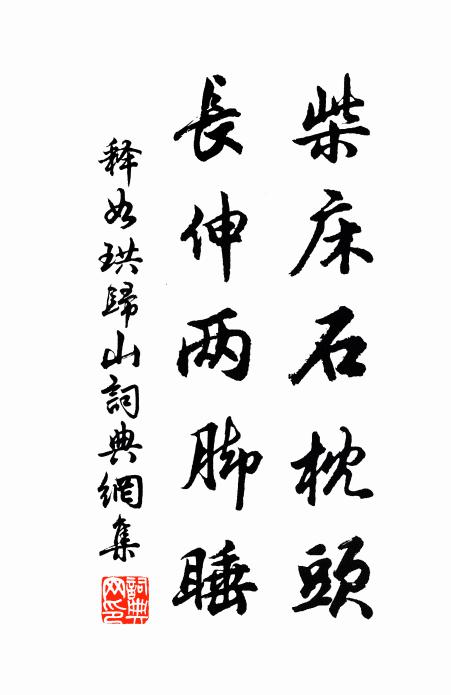 柴床石枕頭
長伸两脚睡
释如珙歸山詞典網集
詞典网印